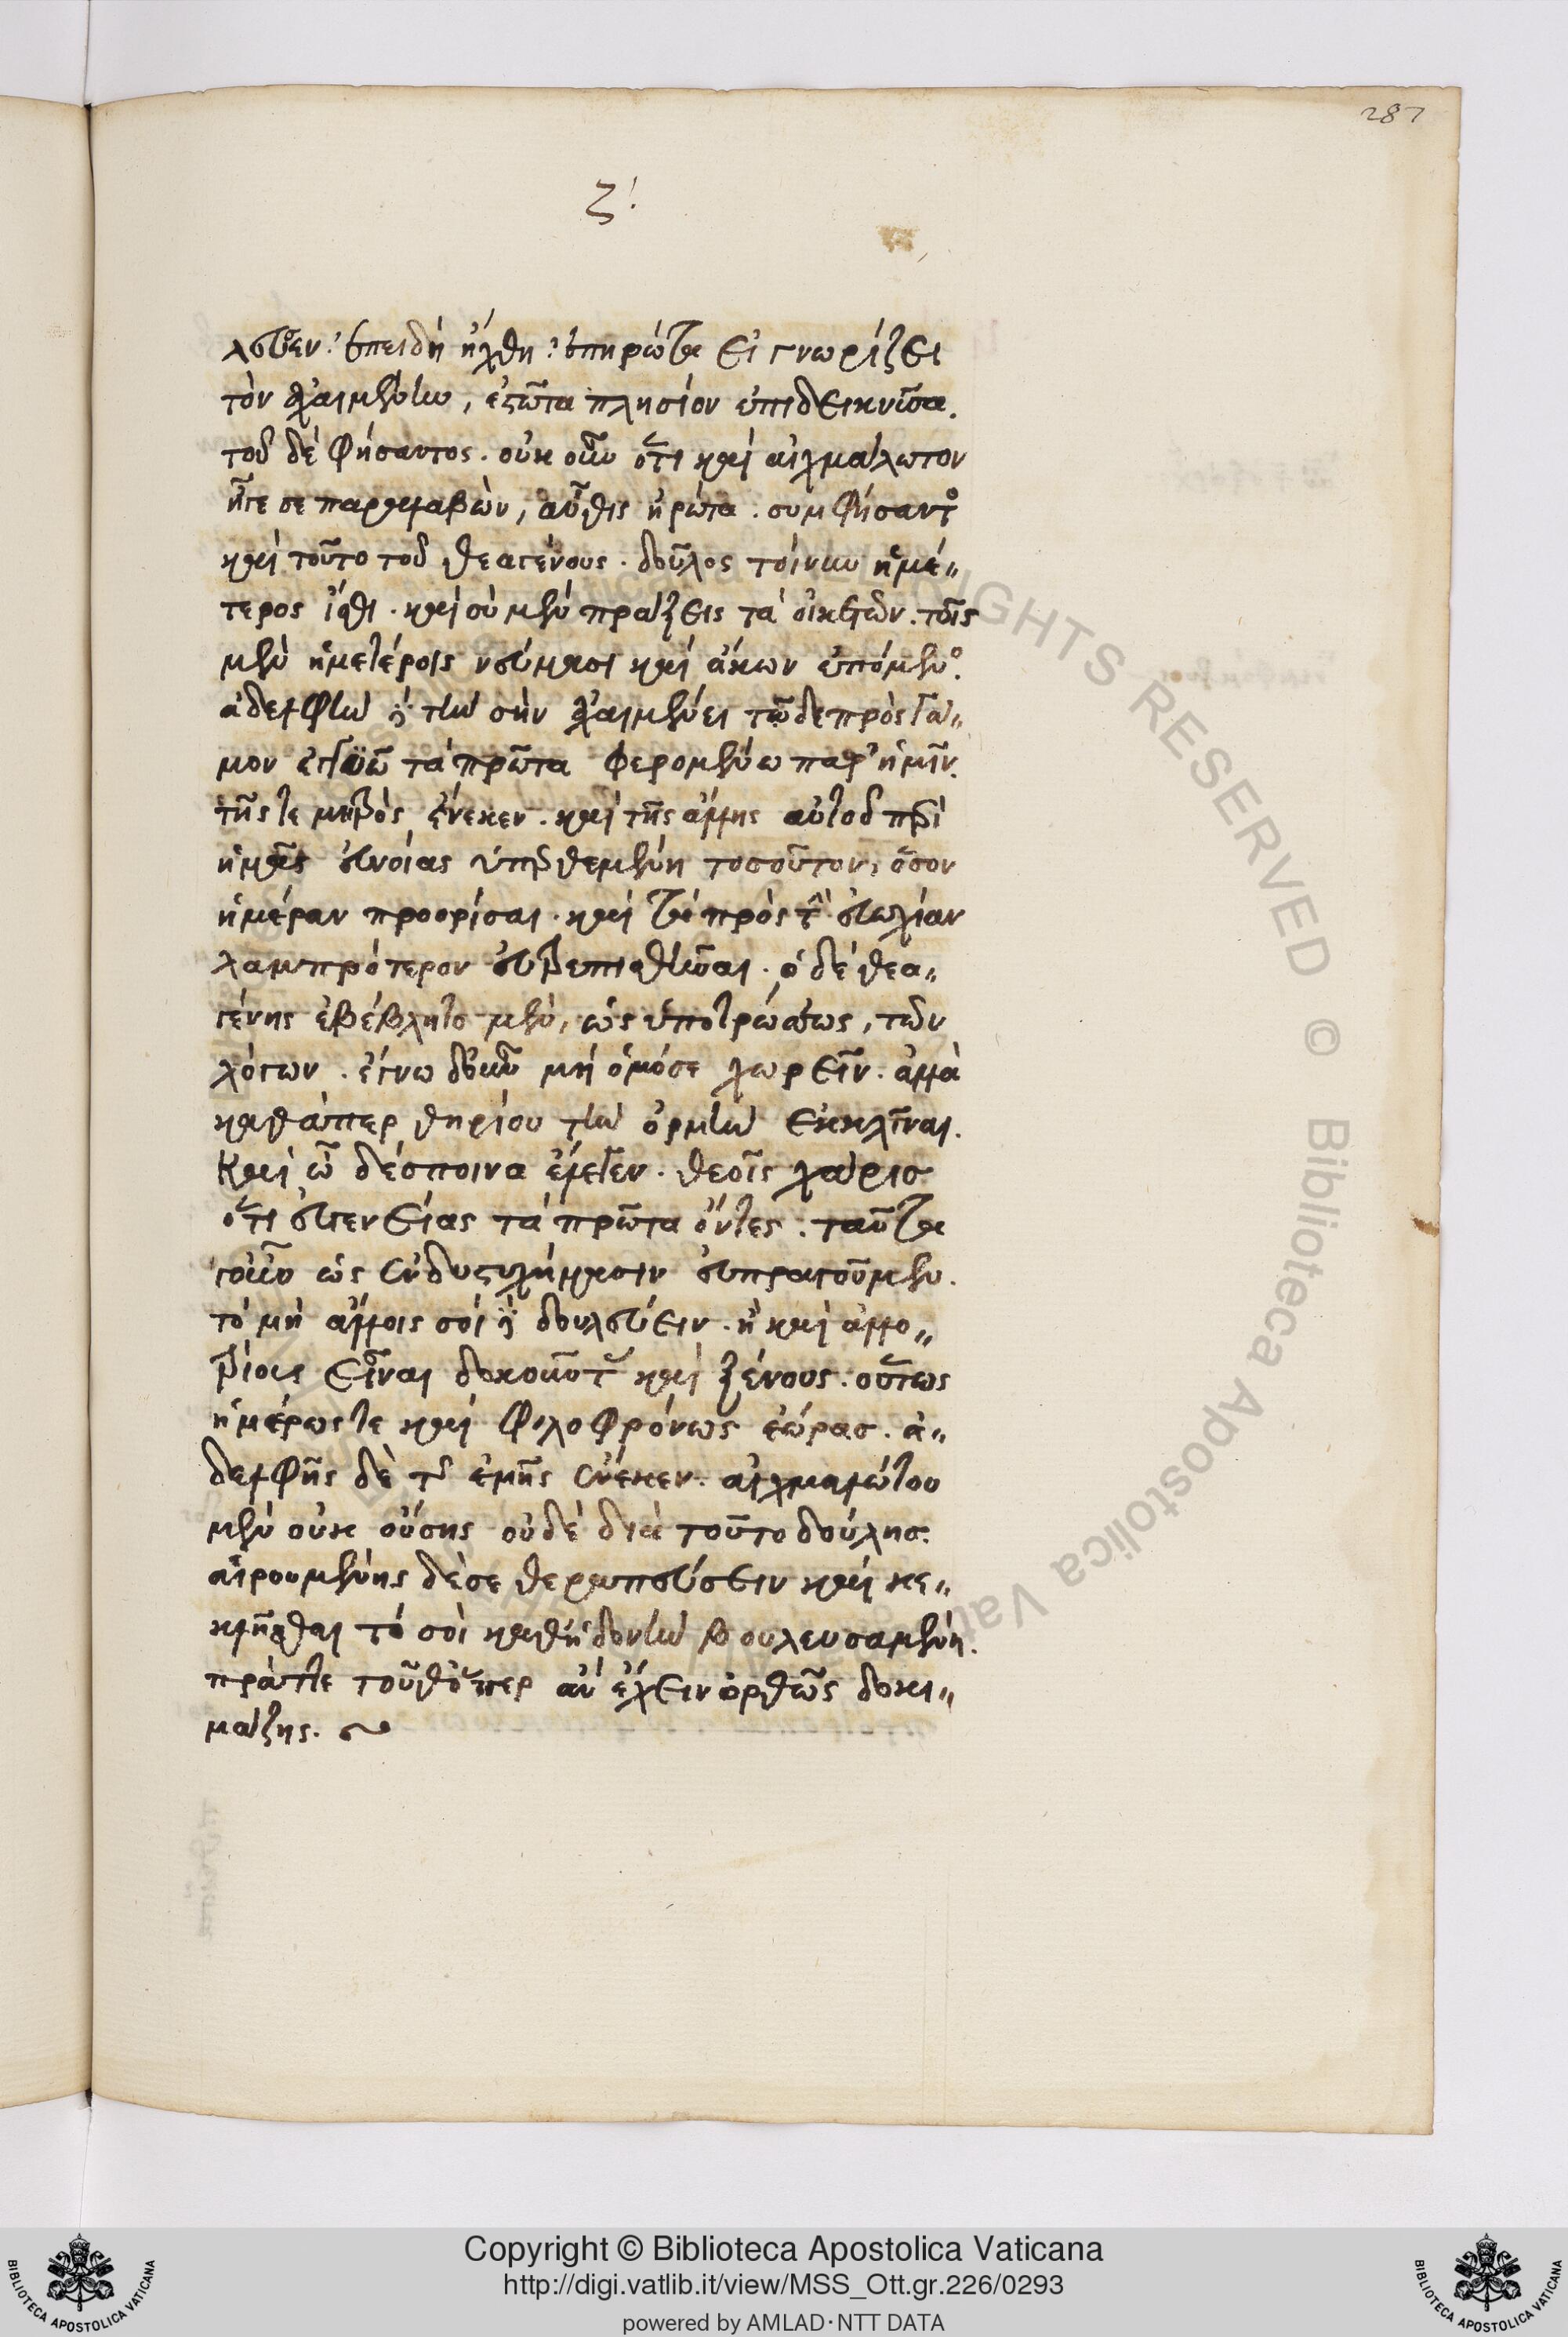 287
ζ!
λευεν. ἐπειδὴ ἤχθη· ἐπηρώτα εἰ γνωρίζει
τὸν ἀχαιμένην, ἑστῶτα πλησίον ἐπιδεικνῦσα.
τοῦ δὲ φήσαντος. οὐκοῦν ὅτι καὶ αἰχμάλωτον
ἦγέ σε παραλαβὼν, αὖθις ἠρώτα. συμφήσαντος
καὶ τοῦτο τοῦ θεαγένους. δοῦλος τοίνυν ἡμέ„
τερος ἴσθι. καὶ σὺ μὲν πράξεις τὰ οἰκετῶν. τοῖς
μὲν ἡμετέροις νεύμασι καὶ ἄκων ἑπόμενος.
ἀδελφὴν δὲ τὴν σὴν ἀχαιμένει τῶδε πρὸς γά„
μον ἐγγυῶ τὰ πρῶτα φερομένω παρ' ἡμῖν.
τῆς τε μητρὸς ἕνεκεν. καὶ τῆς ἄλλης αὐτοῦ περὶ
ἡμᾶς εὐνοίας ὑπερθεμένη τοσοῦτον, ὅσον
ἡμέραν προορίσαι. καὶ τὰ πρὸς τὴν εὐωχίαν
λαμπρότερον εὐτρεπισθῆναι. ὁ δὲ θεα„
γένης ἐβέβλητο μὲν, ὡς ὑπὸ τρώσεως, τῶν
λόγων. ἔγνω δ' οὖν μὴ ὁμόσε χωρεῖν. ἀλλὰ
καθάπερ θηρίου τὴν ὁρμὴν ἐκκλῖναι.
Καὶ ὦ δέσποινα ἔλεγεν. θεοῖς χάρις
ὅτι εὐγενείας τὰ πρῶτα ὄντες. ταῦτα
γοῦν ὡς ἐν δυστυχήμασιν εὐπραγοῦμεν.
τὸ μὴ ἄλλοις σοὶ δὲ δουλεύειν. ἣ καὶ ἀλλο„
τρίους εἶναι δοκοῦντας καὶ ξένους. οὕτως
ἡμέρως τε καὶ φιλοφρόνως ἑώρας. ἀ„
δελφῆς δὲ τῆς ἐμῆς ἕνεκεν. αἰχμαλώτου
μὲν οὐκ οὔσης οὐδὲ διὰ τοῦτο δούλης.
αἱρουμένης δέ σε θεραπεύσειν καὶ κε„
κλῆσθαι τό σοὶ καθ' ἡδονὴν βουλευσαμένη.
πρᾶττε τοῦθ' ὅπερ ἂν ἔχειν ὀρθῶς δοκι„
μάζης.
Copyright © Biblioteca Apostolica Vaticana
http://digi.vatlib.it/view/MSS_Ott.gr.226/0293
powered by AMLAD·NTT DATA